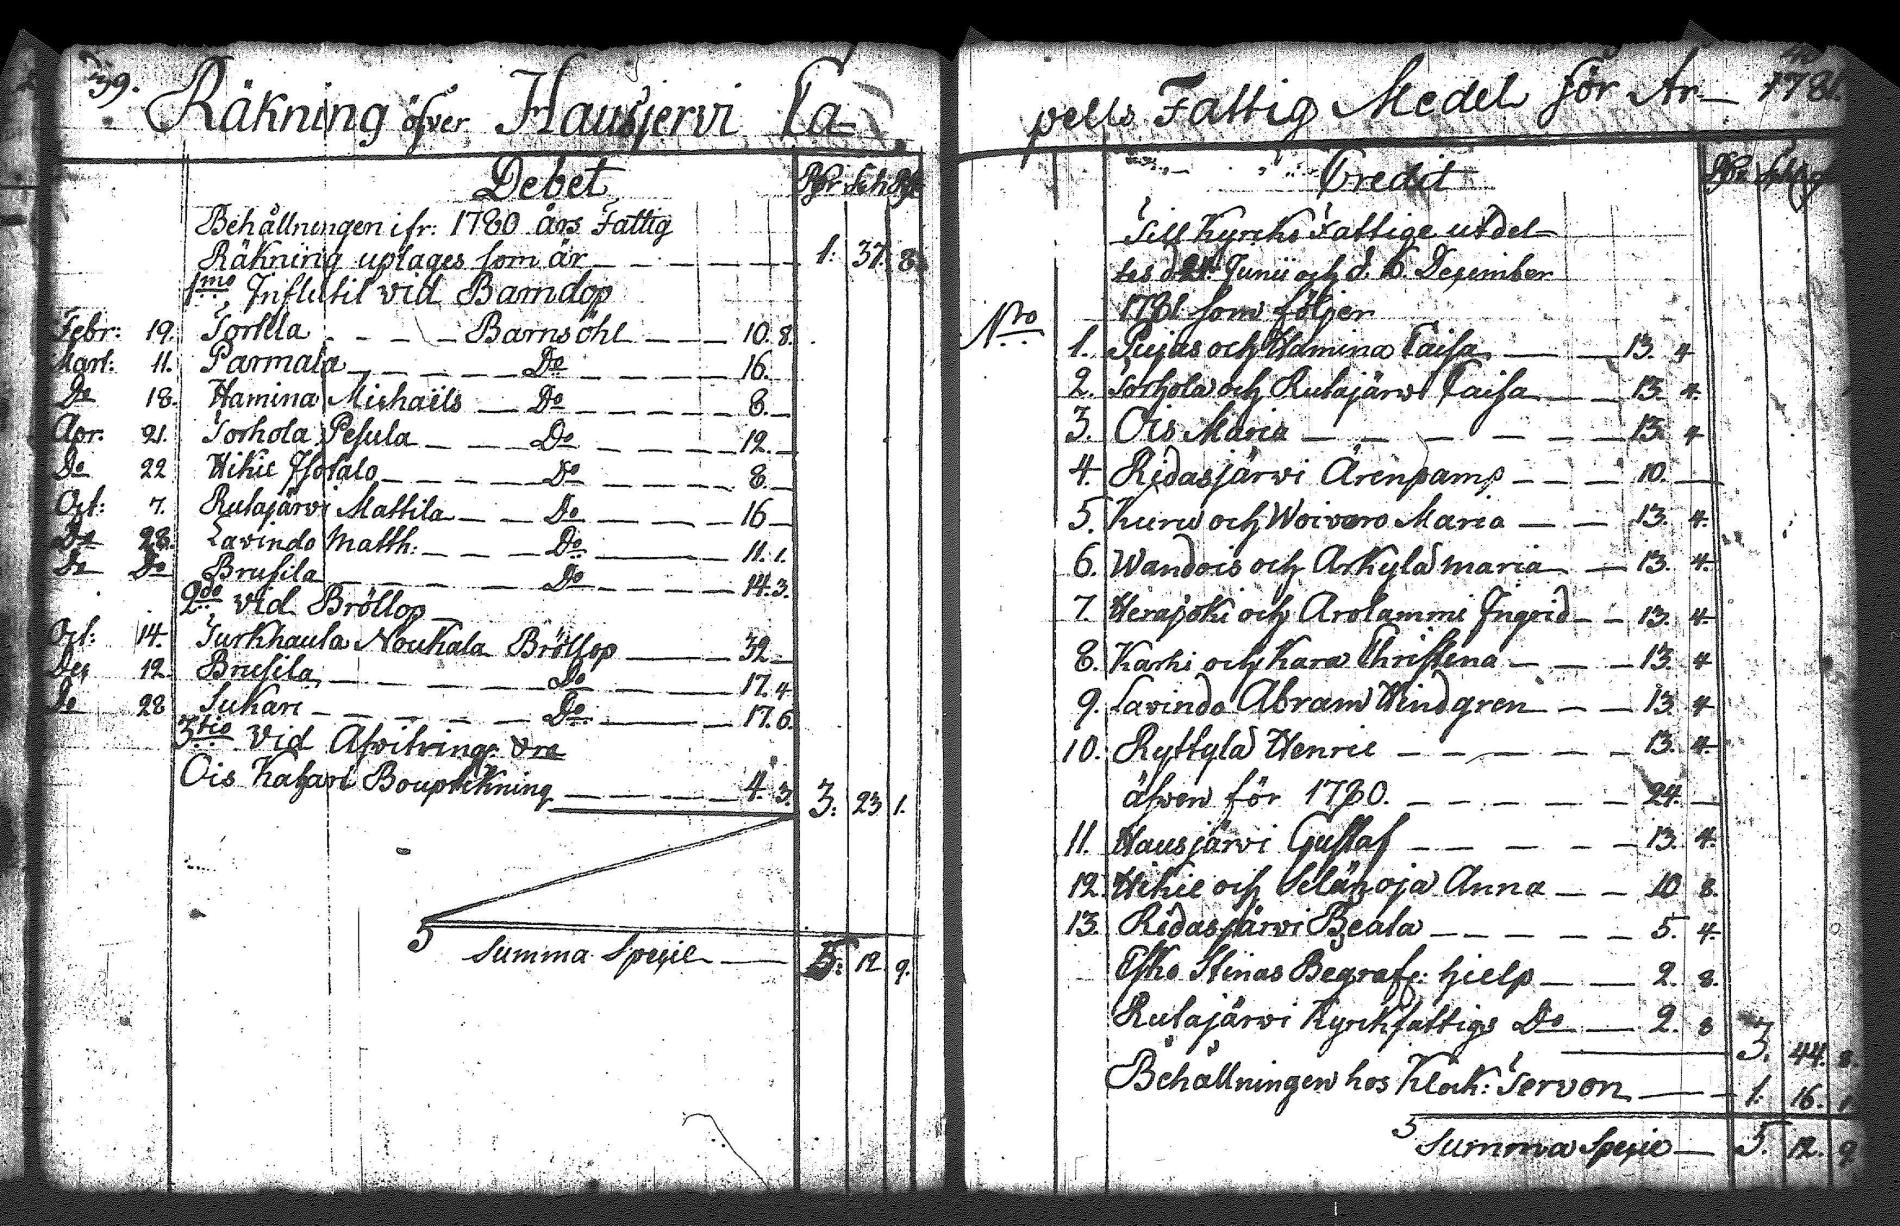 39.
Räkning öfver Hausjervi Ca
Debet Rdr Sch Rst
Behållningen ifr: 1780 års Fattig
Räkning uptages som är 1: 37. 8.
1mo Influtit vid Barndop
Febr: 19. Torkla Barnsöhl 10. 8.
Mart: 11. Parmala Do 16.
Do 18. Hamina Michaëls Do 8.
Apr. 21. Torhola Pesula Do 12.
Do 22 Hikie Isotalo Do 8.
Oct: 7. Rutajärvi Mattila Do 16
Do 28. Lavindo Matth: Do 11. 1.
Do Do Brusila Do 14. 3.
2do vid Bröllop
Oct: 14. Turkhauta Noukala Bröllop 32
Dec 12. Brusila Do 17. 4
Do 28 Sukari Do 17. 6.
3tio vid Afvitring
Ois Katsari Bouptekning 4. 3. 3: 23 1.
Summa Specie 5: 12. 9.
pells Fattig Medel för År 1781.
Credit
Till Kyrko Fattige utdel
tes d 24 Junii och d. 16 Desember
1781 som följer
Nro
1. Pujas och Hamina Caisa 13. 4
2. Torhola och Rutajärvi Caisa 13. 4.
3. Ois Maria 13. 4
4. Ridasjärvi Ärenpamp 10.
5. Kuru och Woivaro Maria 13. 4.
6. Wandois och Arkylä maria 13. 4.
7. Herajoki och Arolammi Ingrid 13. 4
8. Karhi och Kara Christina 13. 4
9. Lavindo Abram Windgren 13. 4
10. Ryttylä Henric 13. 4.
äfven för 1780. 24.
11. Hausjärvi Gustaf 13. 4.
12. Hikie och Selänoja Anna 10 8.
13. Ridasjärvi Beata 5. 4.
Esko Stinas Begrafn: hjelp 2. 8.
Rutajärvi Kyrkfattigs Do 2. 8
3. 44. 8.
Behållningen hos Klock: Servon 1: 16. 1
Summa Specie 5. 12. 9